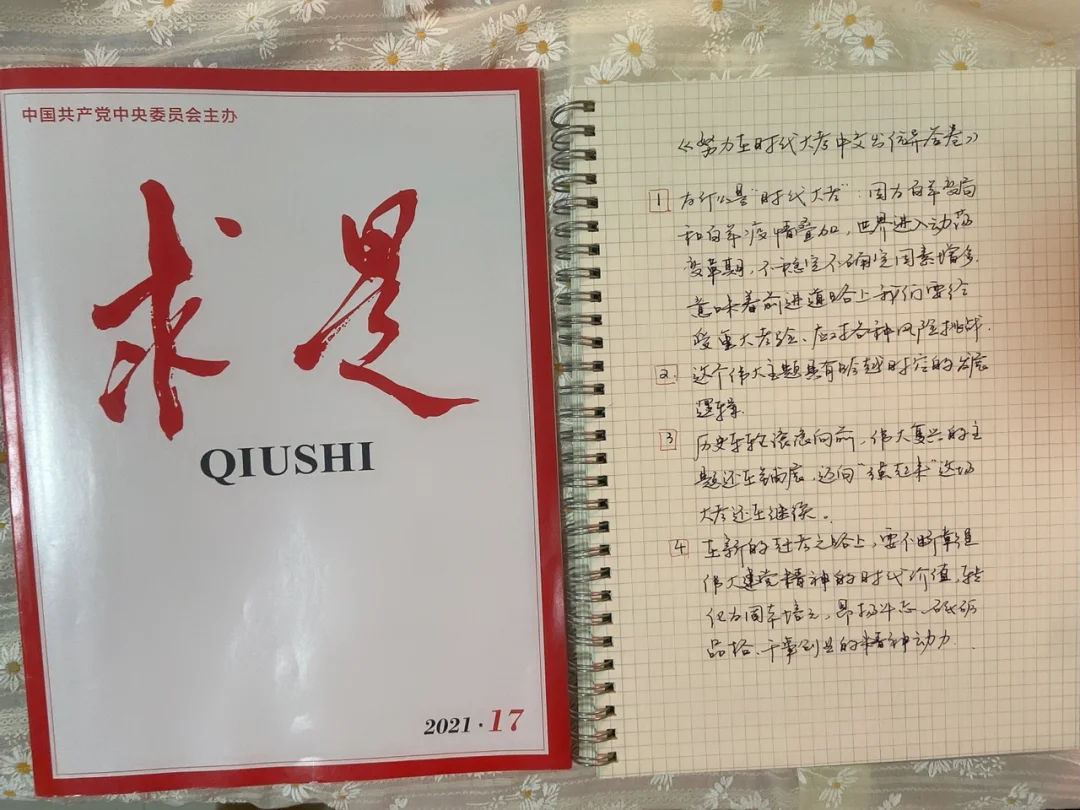 中国共产党中央委员会主办
求是
QIUSHI
2021·17
《努力在时代大考中交出优异答卷》
1 为什么是"时代大考":因为百年变局
和百年疫情叠加,世界进入动荡
变革期,不稳定不确定因素增多.
意味着前进道路上我们要经
受重大考验、应对各种风险挑战.
2. 这个伟大主题具有跨越时空的发展
逻辑.
3 历史车轮滚滚向前,伟大复兴的主
题还在铺展,迈向"强起来"这场
大考还在继续。
4 在新的赶考之路上,要不断掌握
伟大建党精神的时代价值,转
化为固本培元、昂扬斗志、砥砺
品格、干事创业的精神动力.